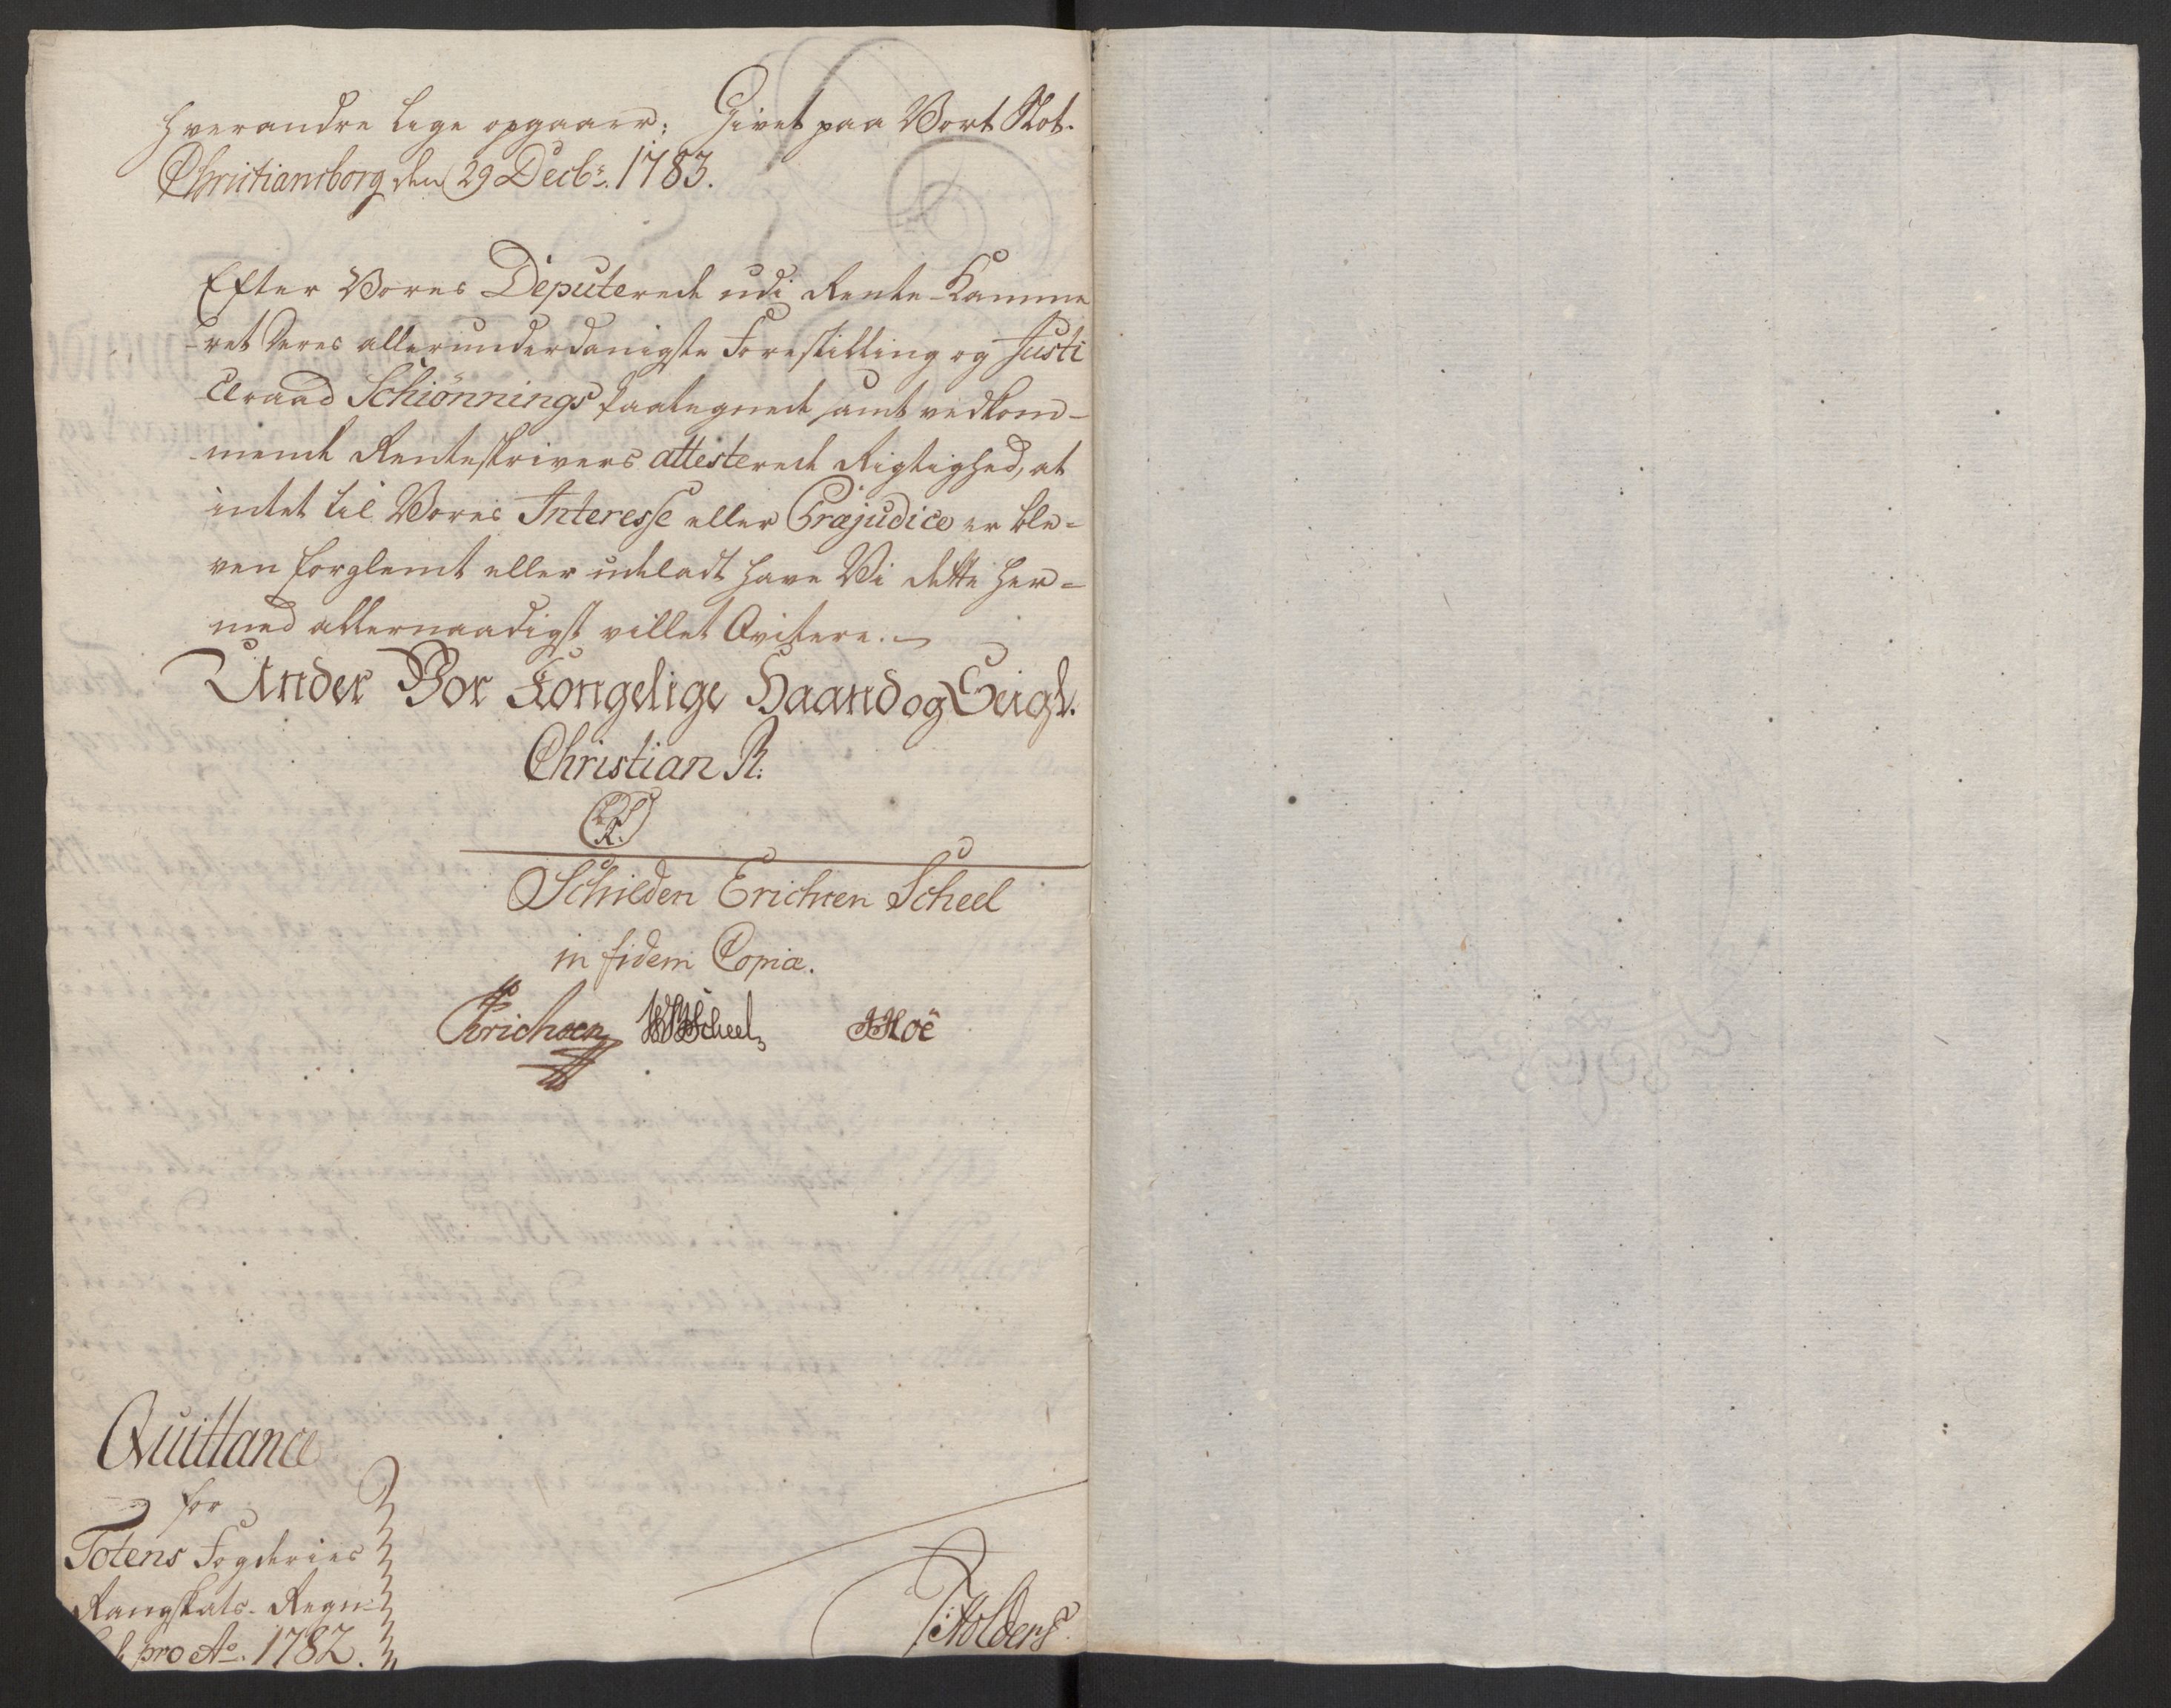 hverandre lige opgaaer; Givet paa Vort Slot
Christiansborg den 29 Decbr. 1783.
Efter Vores Deputerede udi Rente-Kamme
-ret deres allerunderdanigste Forestilling og Justi
ceraad Schiönnings Paategnede samt vedkom-
mende Renteskrivers attesterede Rigtighed, at
intet til Vores Interesse eller Præjudice er ble-
ven forglemt eller udeladt have Vi dette her-
med allernaadigst villet Qvitere.
Under Vor Kongelige Haand og Seigl.
Christian R.
Schilden Erichsen Scheel
in fidem Copiæ.
Erichsen Scheel Hoë
Quittance
for
Totens Fogderies
Rangskats-Regn-
pro Ao. 1782.
Holders